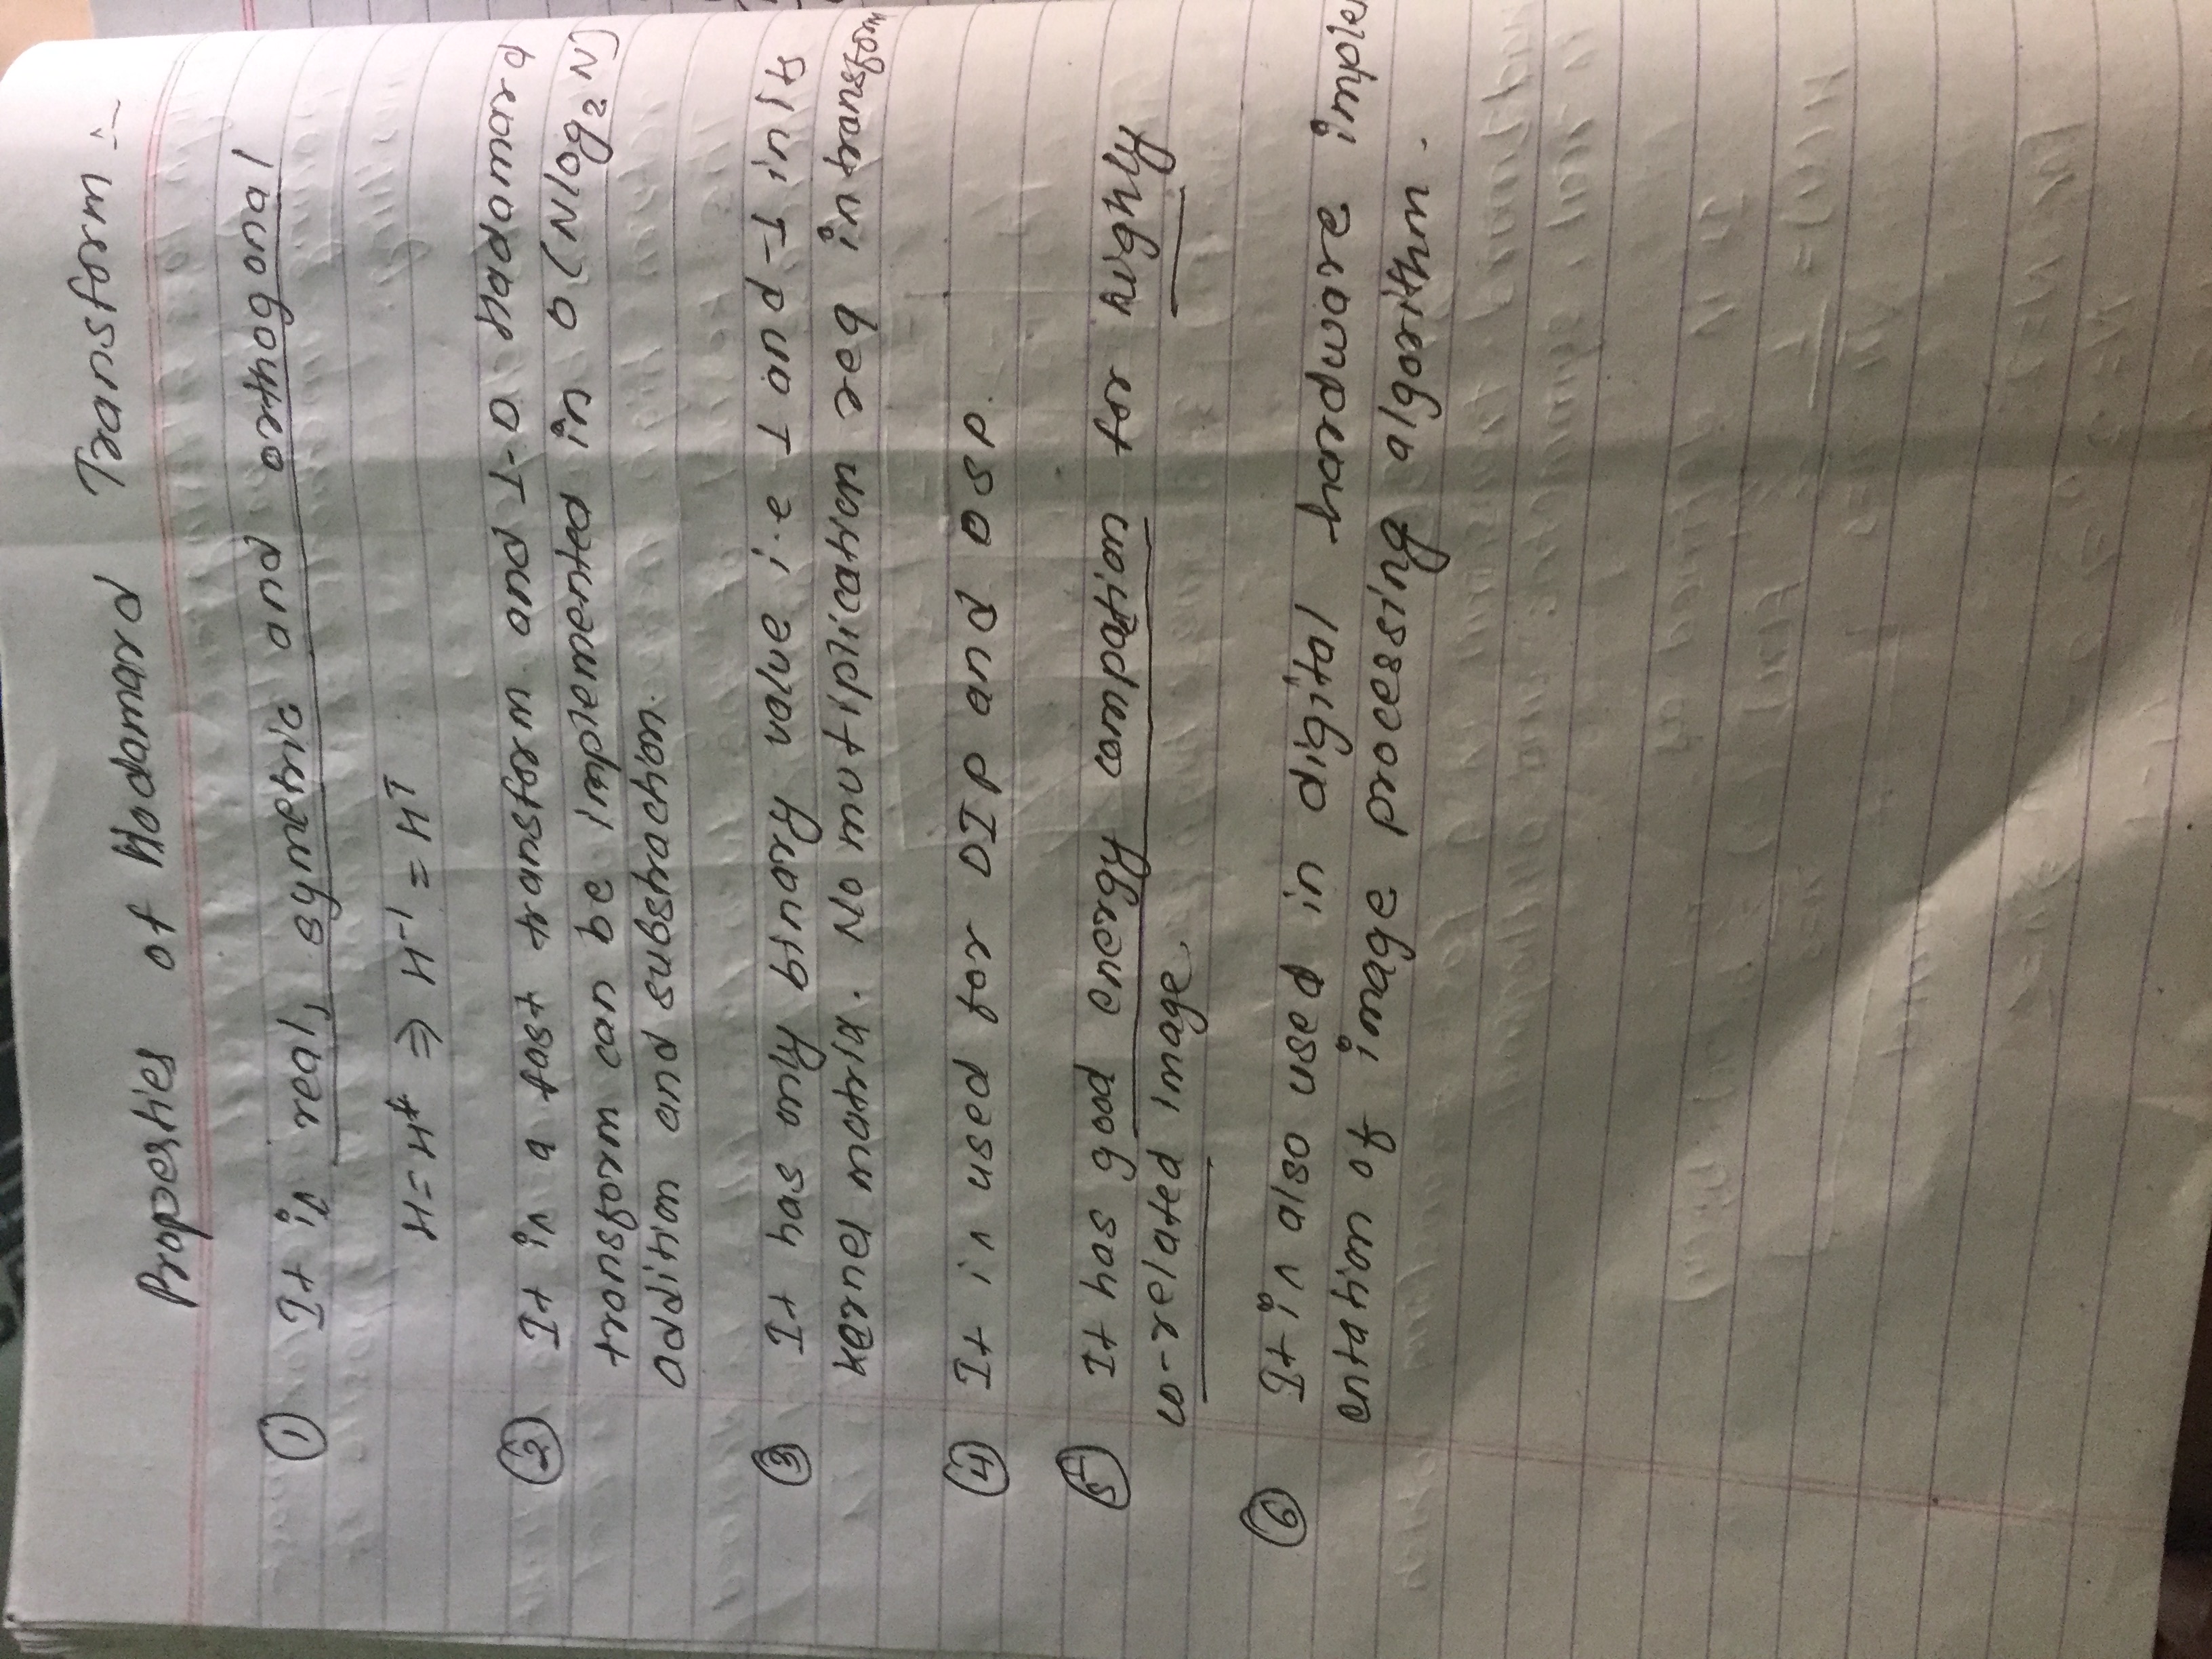 Properties of Hadamard Transform :-
① It is real, symetric and orthogonal
H = H* ⇒ H⁻¹ = Hᵀ
② It is a fast transform and 1-D Hadamard
transform can be implemented in O(Nlog₂N)
addition and substraction.
③ It has only binary value i.e 1 and -1 in its
kernel matrix. No mutiplication req in transform
④ It is used for DIP and DSP.
⑤ It has good energy compation for highly
co-related image.
⑥ It is also used in digital hardware implem
entation of image processing algorithm.